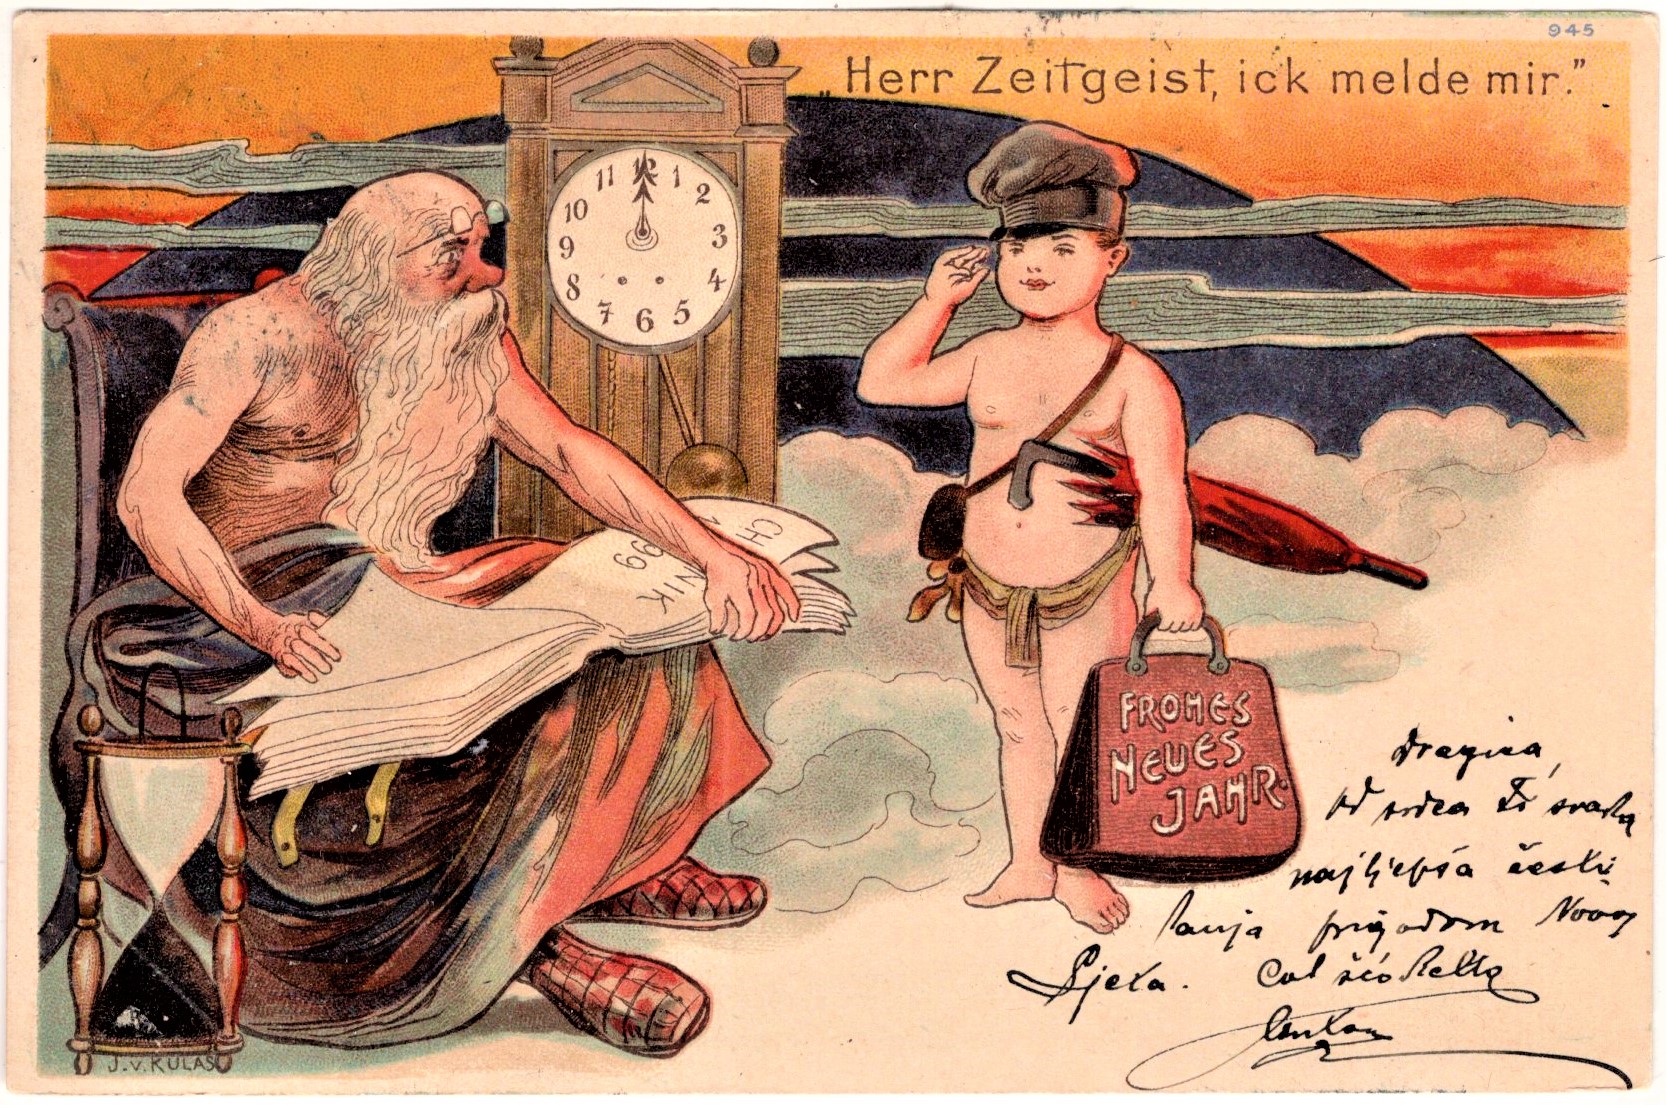 945
„Herr Zeitgeist, ick melde mir."
11 12 1
10 2
9 3
8 4
7 6 5
CH NIK
99
FROHES
NEUES
JAHR.
Dragica,
Od srdca Ti svaka
najljepša česti
tanja prigodom Novog
Ljeta.
J.v.KULAS